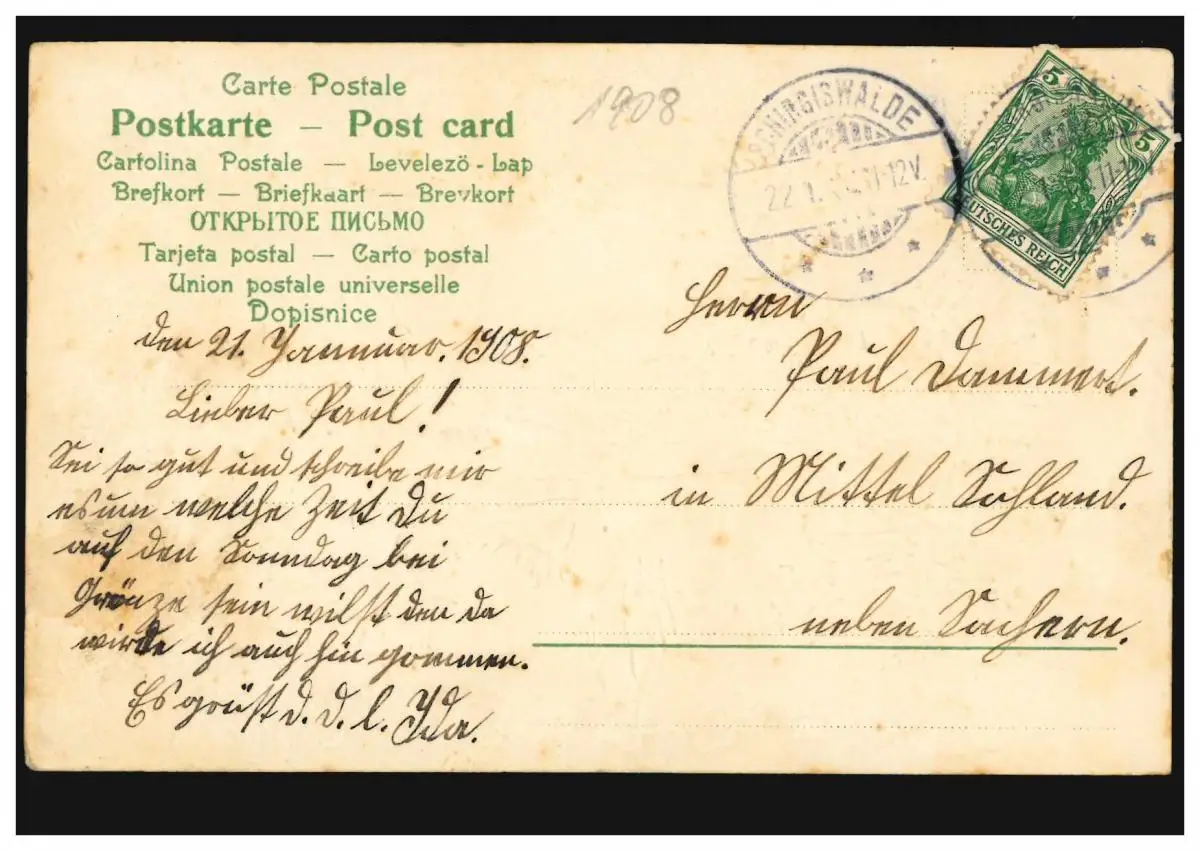 Carte Postale
Postkarte — Post card
Cartolina Postale — Levelező-Lap
Brefkort — Briefkaart — Brevkort
ОТКРЫТОЕ ПИСЬМО
Tarjeta postal — Carto postal
Union postale universelle
Dopisnice
1908
SCHIRGISWALDE
22.1. 11-12V.
5
5
DEUTSCHES REICH
den 21. Januar. 1908.
Lieber Paul!
Sei so gut und schreibe mir
es um welche Zeit Du
auf den Sonndag bei
Gränze sein wilst den da
wirde ich auch hin gommen.
Es grüßt d. d. l. Ida.
Herrn
Paul Dammert.
in Mittel Sohland.
neben Sachern.